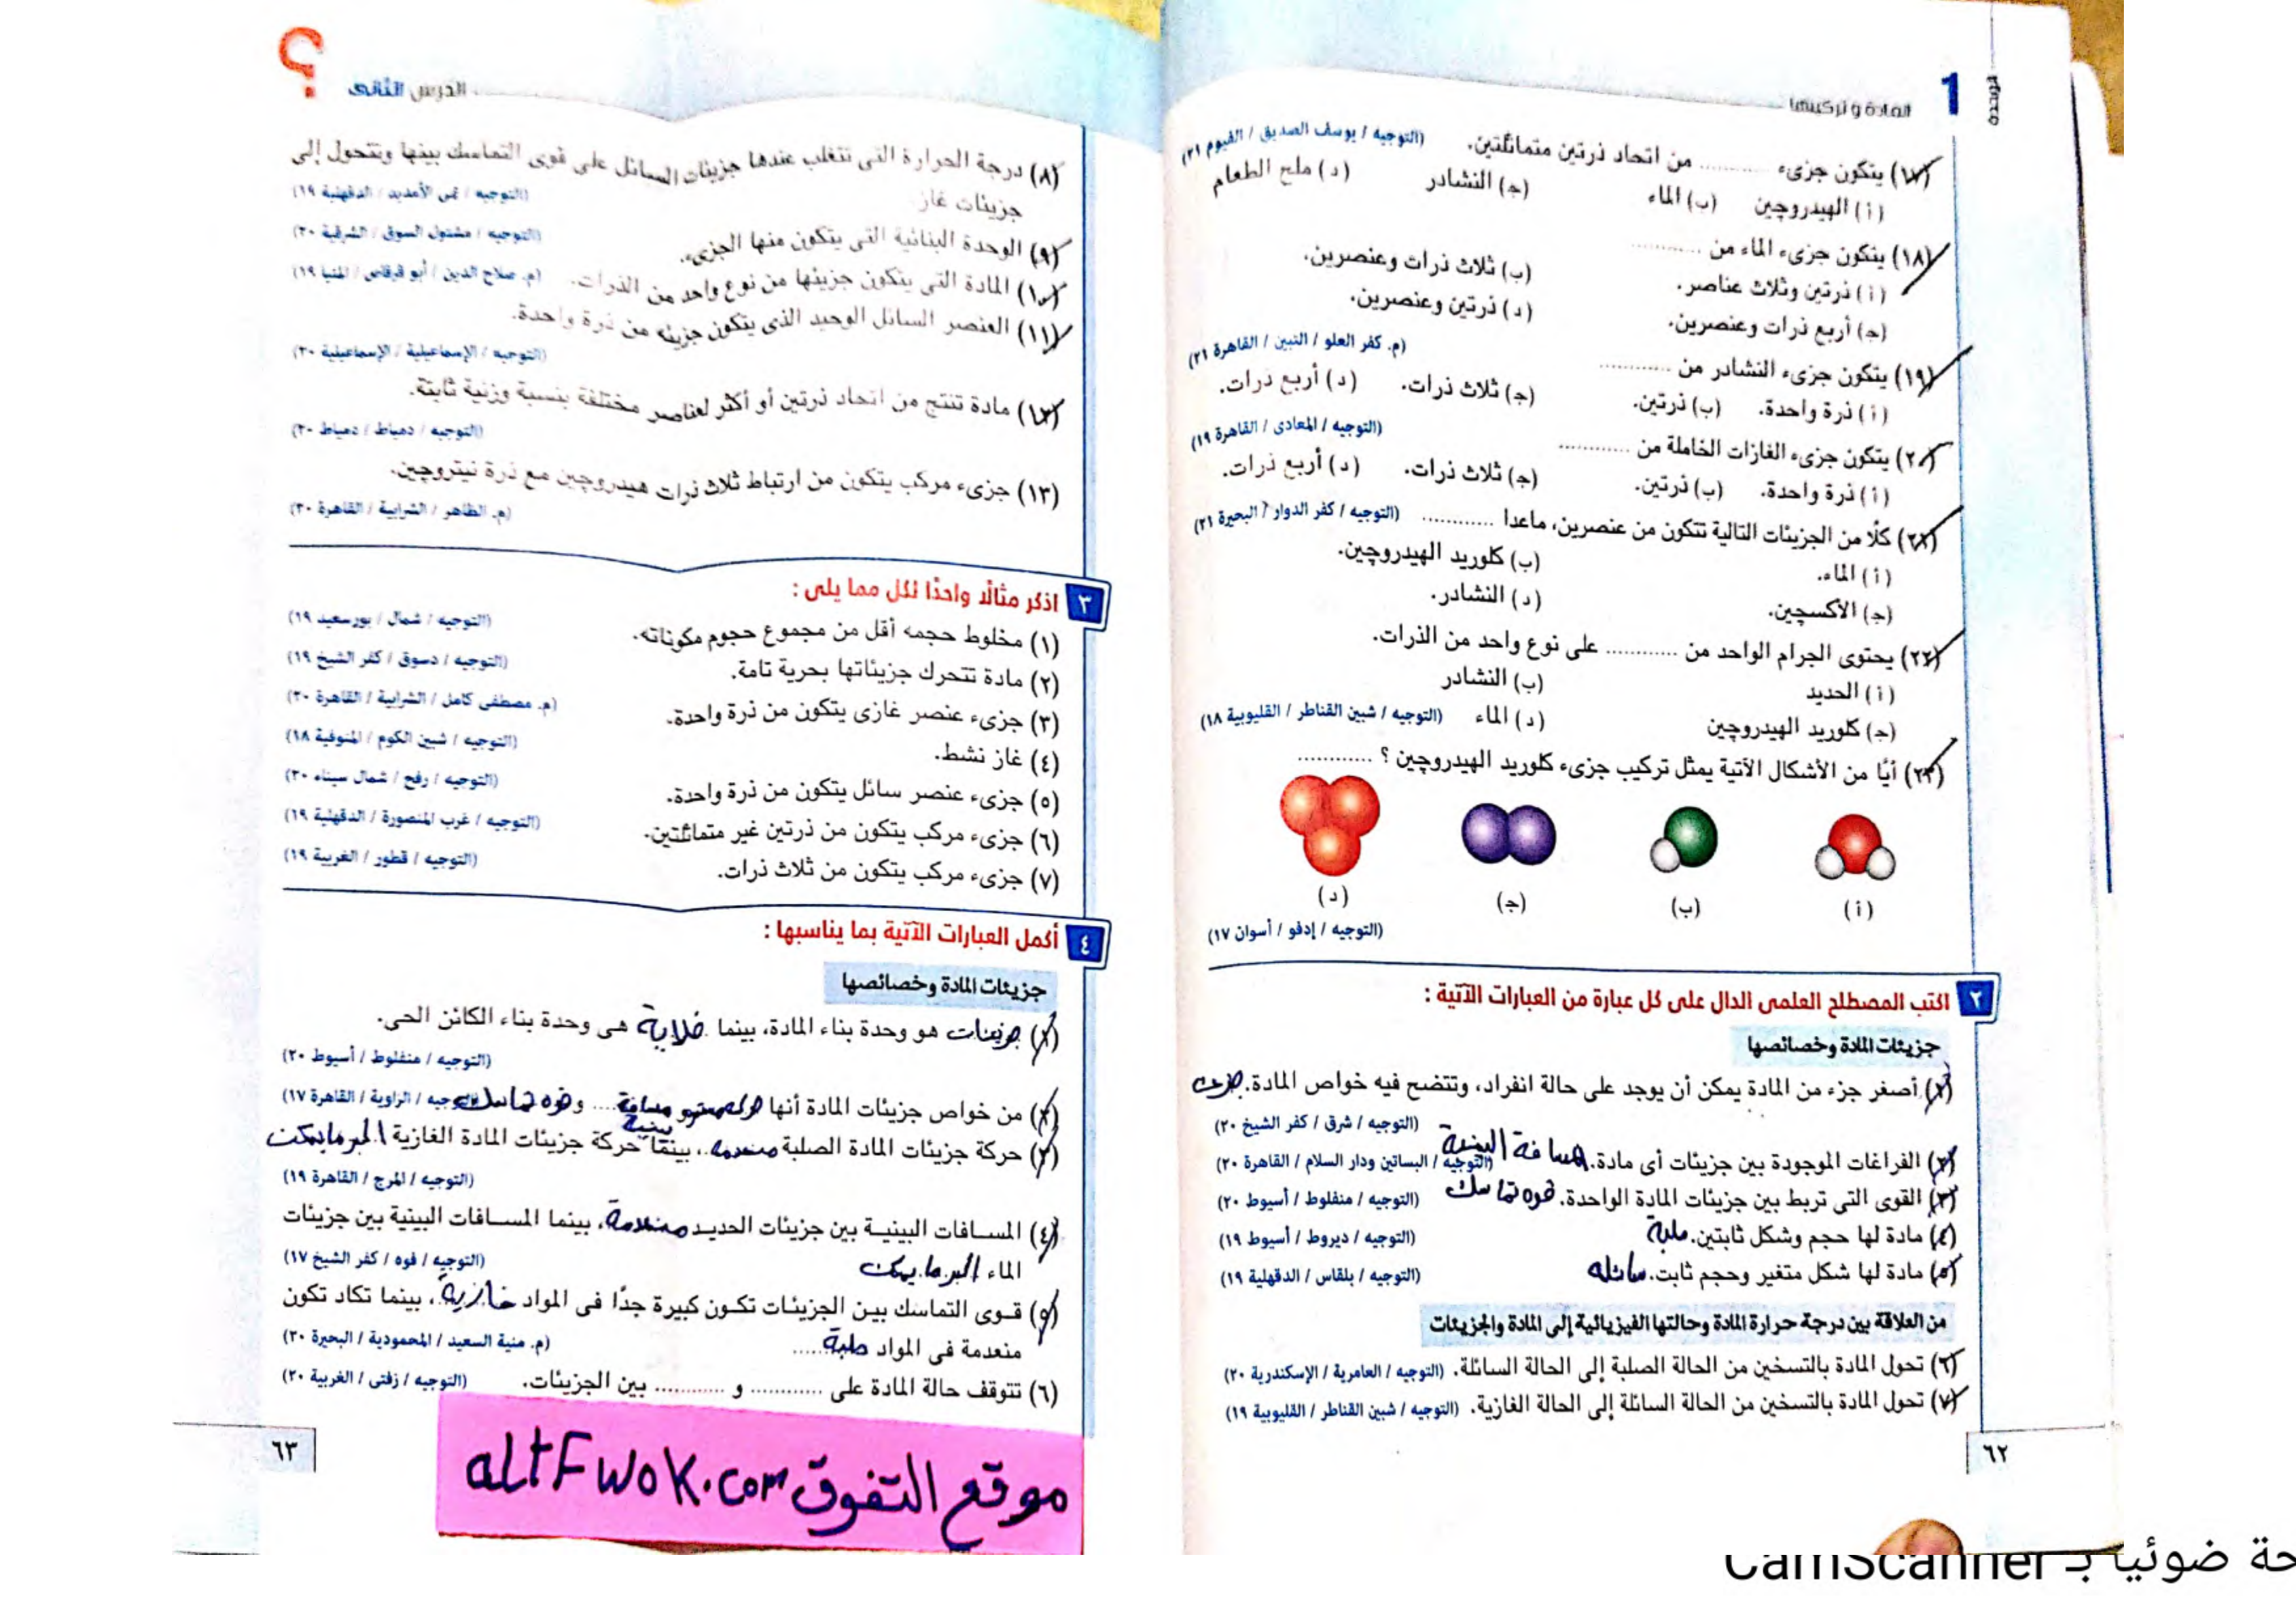 الوحدة
1
المادة وتركيبها
(١٧) يتكون جزىء ............ من اتحاد ذرتين متماثلتين. (التوجيه / يوسف الصديق / الفيوم ٢١)
(أ) الهيدروچين (ب) الماء (جـ) النشادر (د) ملح الطعام
(١٨) يتكون جزىء الماء من ............
(أ) ذرتين وثلاث عناصر. (ب) ثلاث ذرات وعنصرين.
(جـ) أربع ذرات وعنصرين. (د) ذرتين وعنصرين.
(م. كفر العلو / التبين / القاهرة ٢١)
(١٩) يتكون جزىء النشادر من ............
(أ) ذرة واحدة. (ب) ذرتين. (جـ) ثلاث ذرات. (د) أربع ذرات.
(التوجيه / المعادى / القاهرة ١٩)
(٢٠) يتكون جزىء الغازات الخاملة من ............
(أ) ذرة واحدة. (ب) ذرتين. (جـ) ثلاث ذرات. (د) أربع ذرات.
(٢١) كلًا من الجزيئات التالية تتكون من عنصرين، ماعدا ............ (التوجيه / كفر الدوار / البحيرة ٢١)
(أ) الماء. (ب) كلوريد الهيدروچين.
(جـ) الأكسچين. (د) النشادر.
(٢٢) يحتوى الجرام الواحد من ............ على نوع واحد من الذرات.
(أ) الحديد (ب) النشادر
(جـ) كلوريد الهيدروچين (د) الماء (التوجيه / شبين القناطر / القليوبية ١٨)
(٢٣) أيًا من الأشكال الآتية يمثل تركيب جزىء كلوريد الهيدروچين ؟ ............
(أ) (ب) (جـ) (د)
(التوجيه / إدفو / أسوان ١٧)
٢ اكتب المصطلح العلمى الدال على كل عبارة من العبارات الآتية :
جزيئات المادة وخصائصها
(١) أصغر جزء من المادة يمكن أن يوجد على حالة انفراد، وتتضح فيه خواص المادة.
(التوجيه / شرق / كفر الشيخ ٢٠)
(٢) الفراغات الموجودة بين جزيئات أى مادة. مسافة البينية (التوجيه / البساتين ودار السلام / القاهرة ٢٠)
(٣) القوى التى تربط بين جزيئات المادة الواحدة. قوه تماسك (التوجيه / منفلوط / أسيوط ٢٠)
(٤) مادة لها حجم وشكل ثابتين. صلبة (التوجيه / ديروط / أسيوط ١٩)
(٥) مادة لها شكل متغير وحجم ثابت. سائله (التوجيه / بلقاس / الدقهلية ١٩)
من العلاقة بين درجة حرارة المادة وحالتها الفيزيائية إلى المادة والجزيئات
(٦) تحول المادة بالتسخين من الحالة الصلبة إلى الحالة السائلة. (التوجيه / العامرية / الإسكندرية ٢٠)
(٧) تحول المادة بالتسخين من الحالة السائلة إلى الحالة الغازية. (التوجيه / شبين القناطر / القليوبية ١٩)
٦٢
الدرس الثانى
؟
(٨) درجة الحرارة التى تتغلب عندها جزيئات السائل على قوى التماسك بينها وتتحول إلى
جزيئات غاز. (التوجيه / تمى الأمديد / الدقهلية ١٩)
(٩) الوحدة البنائية التى يتكون منها الجزىء. (التوجيه / مشتول السوق / الشرقية ٢٠)
(١٠) المادة التى يتكون جزيئها من نوع واحد من الذرات. (م. صلاح الدين / أبو قرقاص / المنيا ١٩)
(١١) العنصر السائل الوحيد الذى يتكون جزيئه من ذرة واحدة.
(التوجيه / الإسماعيلية / الإسماعيلية ٢٠)
(١٢) مادة تنتج من اتحاد ذرتين أو أكثر لعناصر مختلفة بنسبة وزنية ثابتة.
(التوجيه / دمياط / دمياط ٢٠)
(١٣) جزىء مركب يتكون من ارتباط ثلاث ذرات هيدروچين مع ذرة نيتروچين.
(م. الظاهر / الشرابية / القاهرة ٢٠)
٣ اذكر مثالًا واحدًا لكل مما يلى :
(١) مخلوط حجمه أقل من مجموع حجوم مكوناته. (التوجيه / شمال / بورسعيد ١٩)
(٢) مادة تتحرك جزيئاتها بحرية تامة. (التوجيه / دسوق / كفر الشيخ ١٩)
(٣) جزىء عنصر غازى يتكون من ذرة واحدة. (م. مصطفى كامل / الشرابية / القاهرة ٢٠)
(٤) غاز نشط. (التوجيه / شبين الكوم / المنوفية ١٨)
(٥) جزىء عنصر سائل يتكون من ذرة واحدة. (التوجيه / رفح / شمال سيناء ٢٠)
(٦) جزىء مركب يتكون من ذرتين غير متماثلتين. (التوجيه / غرب المنصورة / الدقهلية ١٩)
(٧) جزىء مركب يتكون من ثلاث ذرات. (التوجيه / قطور / الغربية ١٩)
٤ أكمل العبارات الآتية بما يناسبها :
جزيئات المادة وخصائصها
(١) جزيئات هو وحدة بناء المادة، بينما خلاية هى وحدة بناء الكائن الحى.
(التوجيه / منفلوط / أسيوط ٢٠)
(٢) من خواص جزيئات المادة أنها مسافة بينية و قوه تماسك (التوجيه / الزاوية / القاهرة ١٧)
(٣) حركة جزيئات المادة الصلبة منعدمه، بينما حركة جزيئات المادة الغازية اكبر مايمكن
(التوجيه / المرج / القاهرة ١٩)
(٤) المسافات البينية بين جزيئات الحديد منعدمة، بينما المسافات البينية بين جزيئات
الماء اكبر ما يمكن (التوجيه / فوه / كفر الشيخ ١٧)
(٥) قوى التماسك بين الجزيئات تكون كبيرة جدًا فى المواد غازية، بينما تكاد تكون
منعدمة فى المواد صلبة (م. منية السعيد / المحمودية / البحيرة ٢٠)
(٦) تتوقف حالة المادة على ............ و ............ بين الجزيئات. (التوجيه / زفتى / الغربية ٢٠)
٦٣
موقع التفوق altFwok.com
حة ضوئيا بـ CamScanner